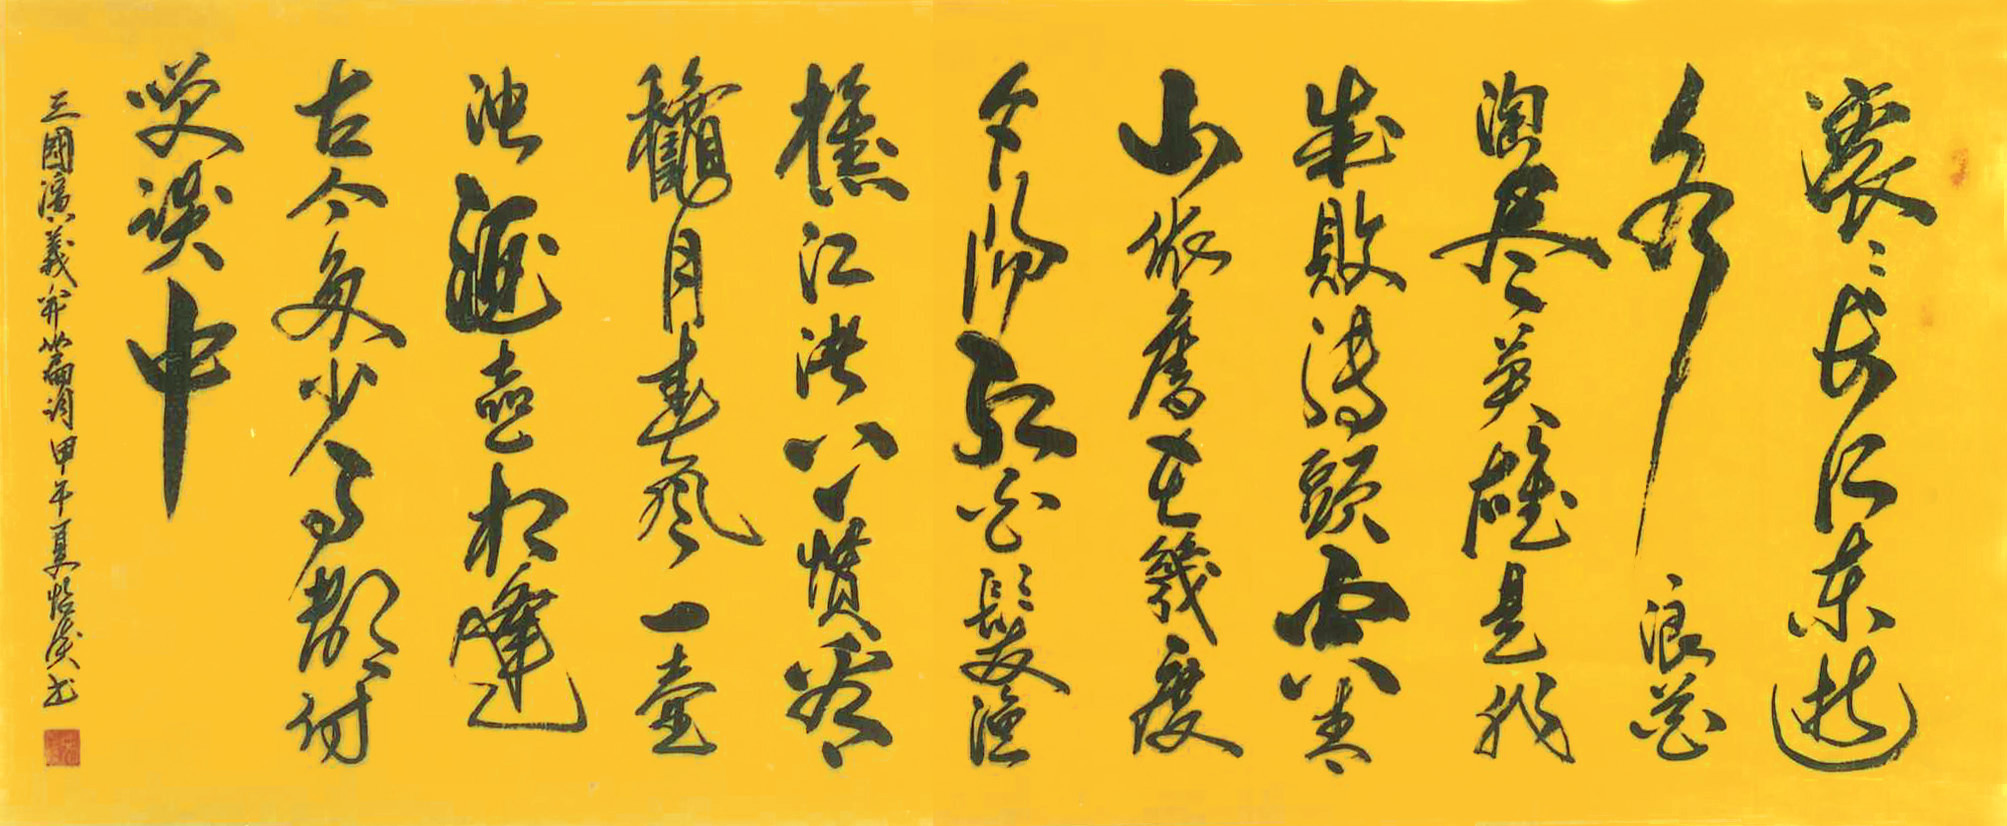 滚〻长江东逝
水浪花
淘尽英雄是非
成敗转頭空青
山依舊在幾度
夕陽红白髮渔
樵江渚上慣看
龝月春風一壶
浊酒喜相逢
古今多少事都付
笑谈中
三國演義开篇词甲午夏书